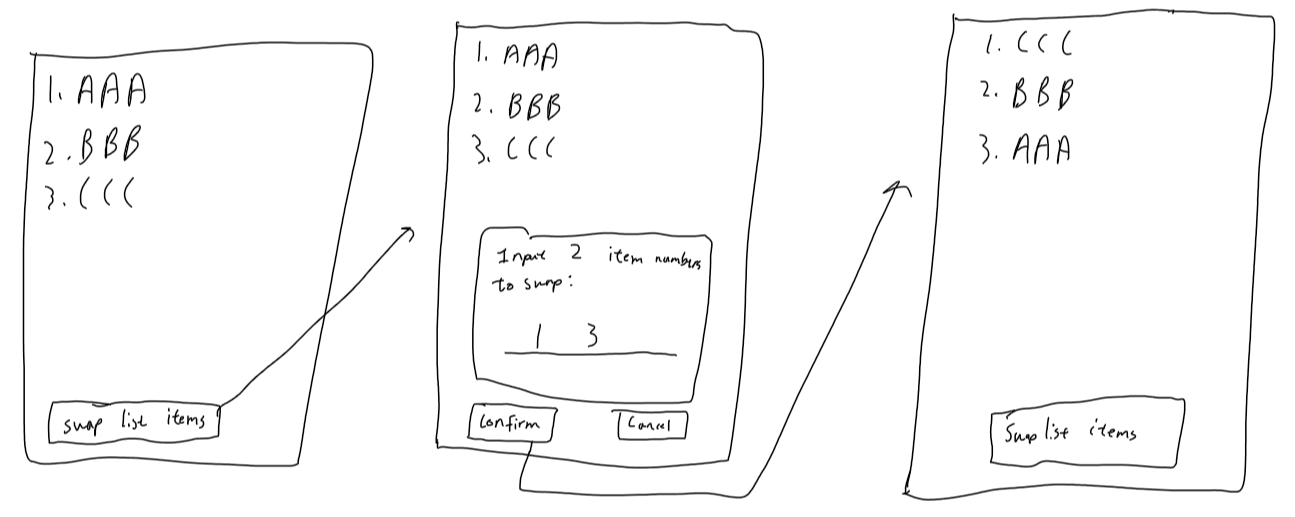 1. AAA
2. BBB
3. CCC
swap list items
1. AAA
2. BBB
3. CCC
Input 2 item numbers
to swap:
1 3
Confirm
Cancel
1. CCC
2. BBB
3. AAA
Swap list items